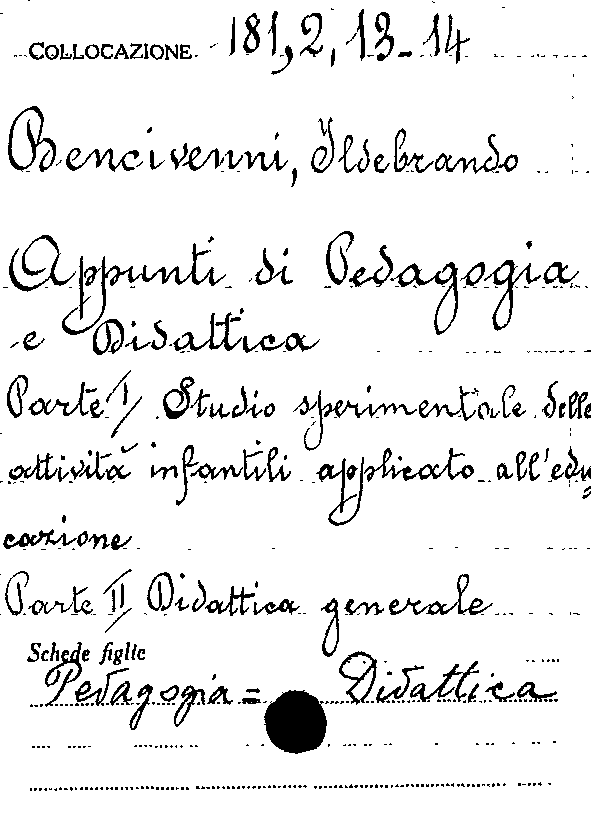 COLLOCAZIONE 181,2,13-14
Bencivenni, Ildebrando
Appunti di Pedagogia
e Didattica
Parte I/ Studio sperimentale delle
attività infantili applicato all'edu
cazione
Parte II/ Didattica generale
Schede figlie
Pedagogia = Didattica